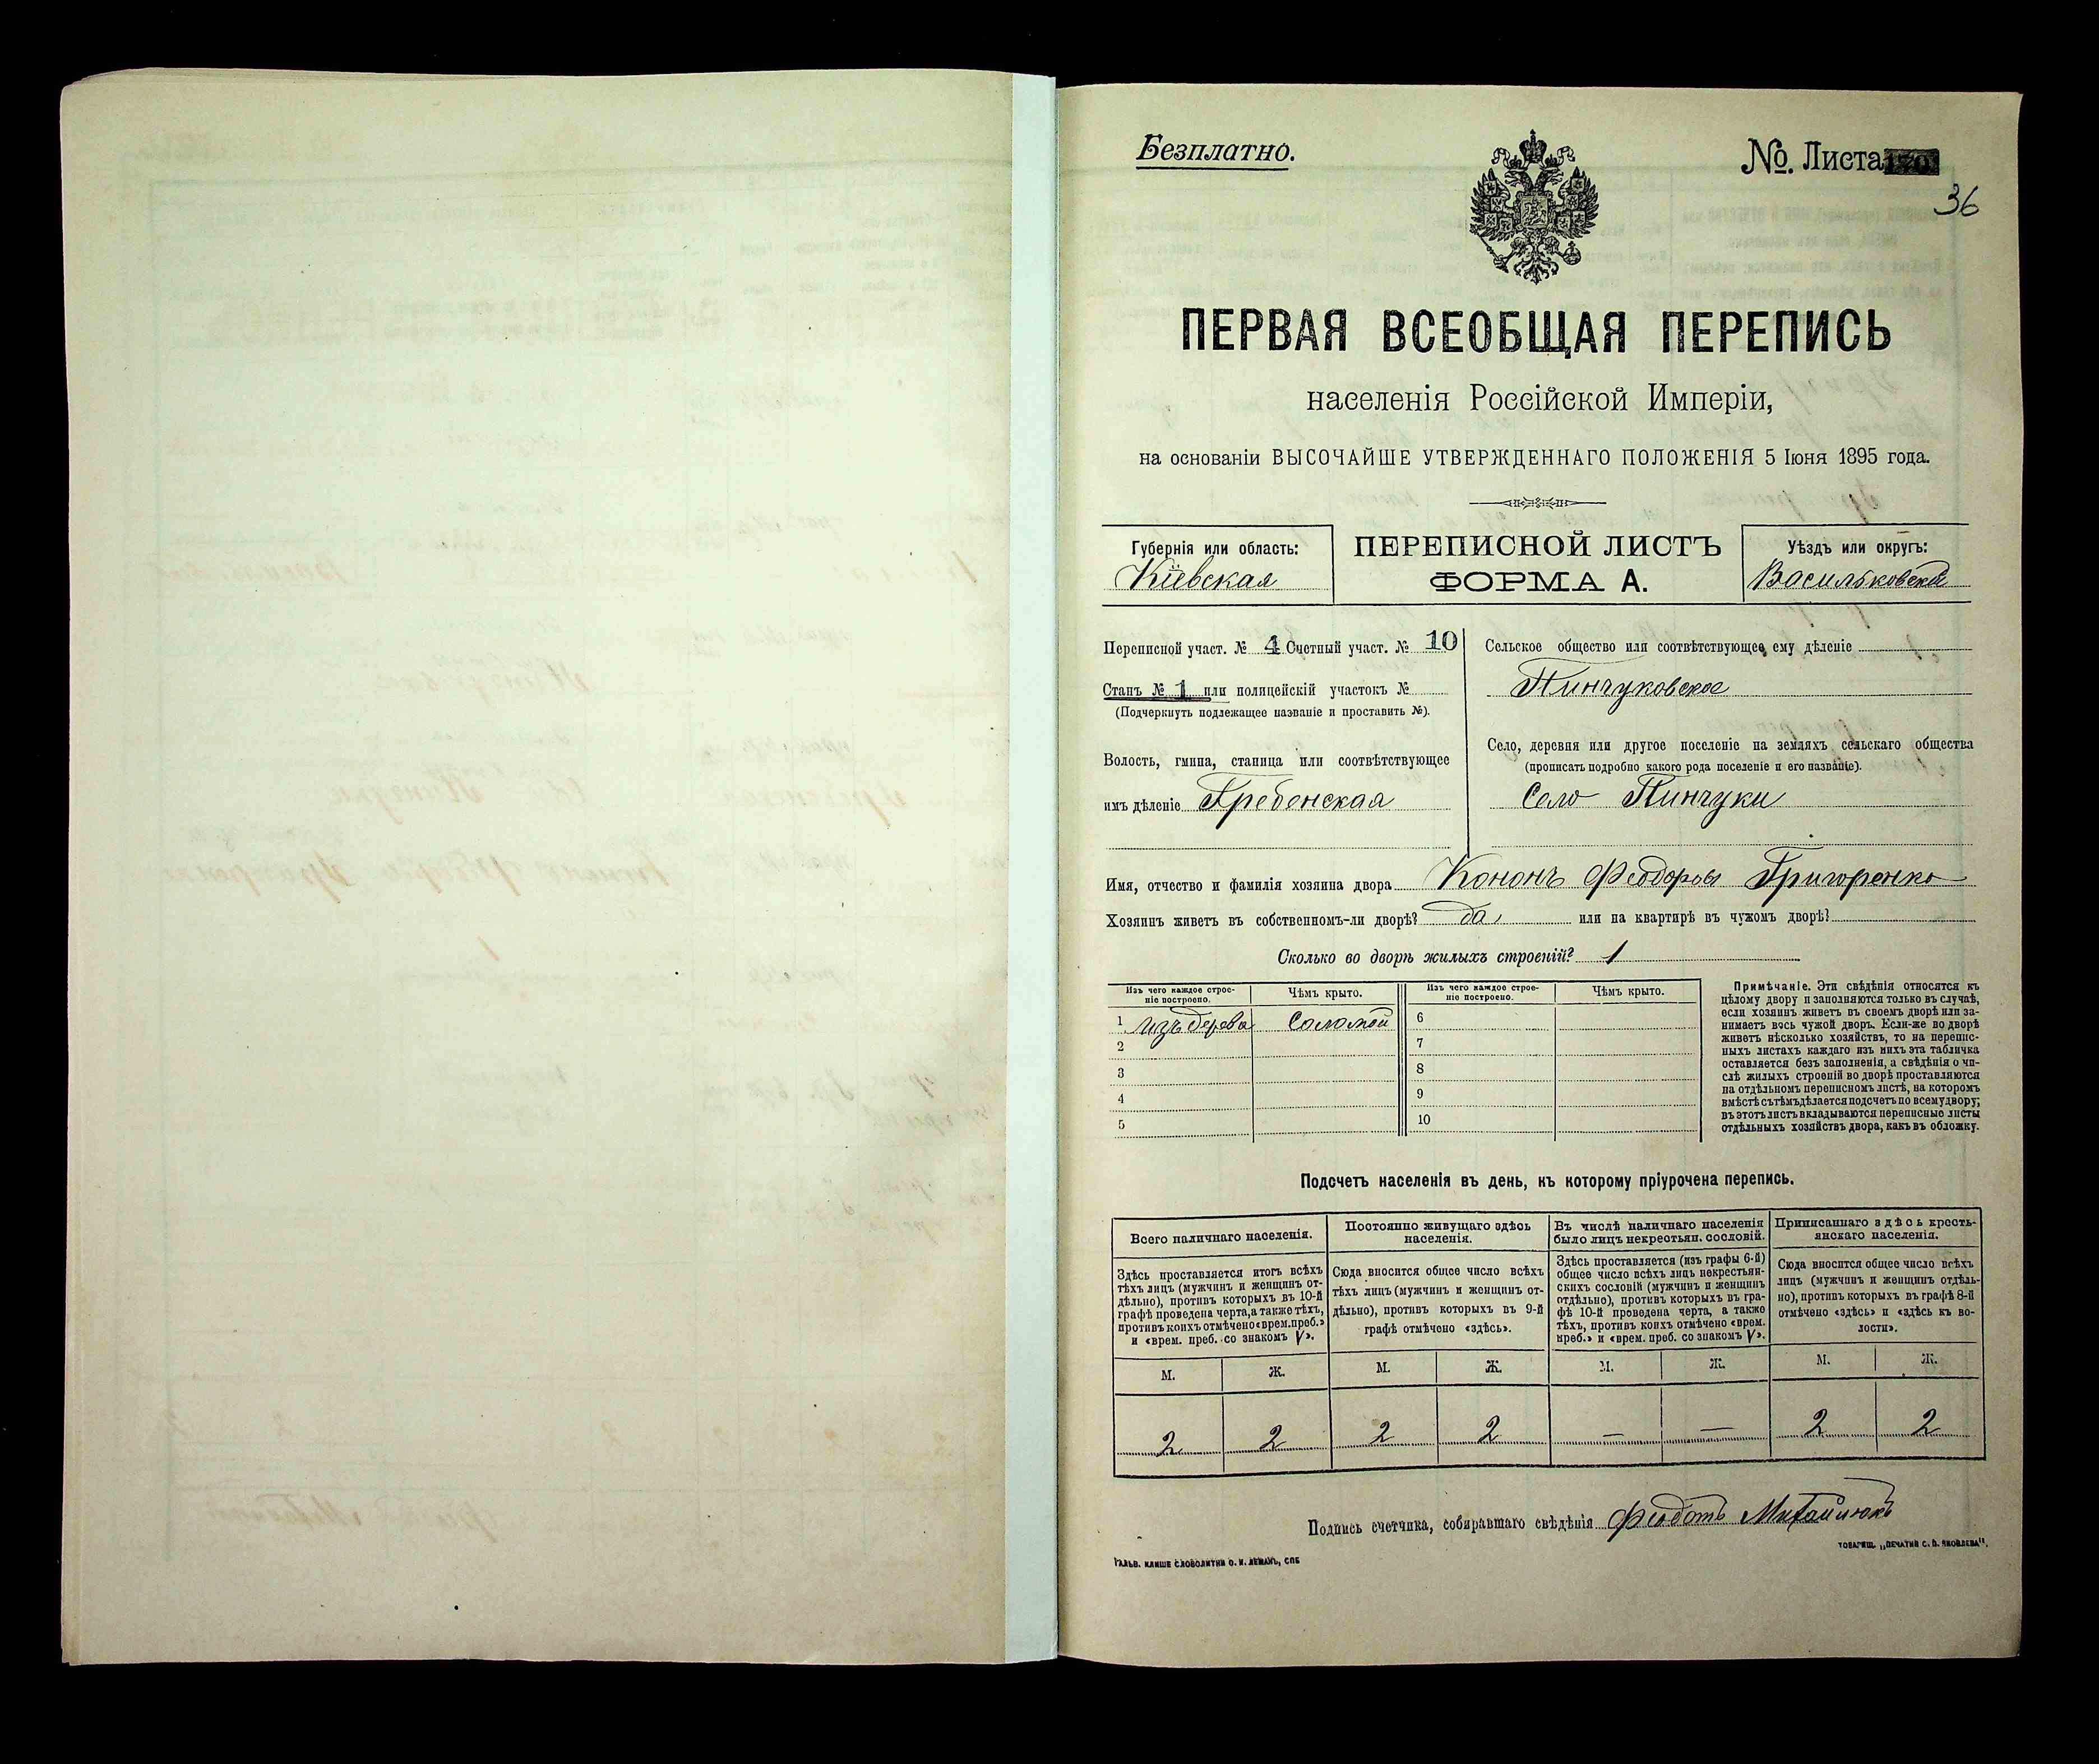 Безплатно.
№. Листа
36
ПЕРВАЯ ВСЕОБЩАЯ ПЕРЕПИСЬ
населенія Россійской Имперіи,
на основаніи ВЫСОЧАЙШЕ УТВЕРЖДЕННАГО ПОЛОЖЕНІЯ 5 Іюня 1895 года.
Губернія или область:
Кіевская
ПЕРЕПИСНОЙ ЛИСТЪ
ФОРМА А.
Уѣздъ или округъ:
Васильковскій
Переписной участ. № 4 Счетный участ. № 10
Станъ № 1 или полицейскій участокъ №
(Подчеркнуть подлежащее названіе и проставить №).
Волость, гмина, станица или соотвѣтствующее
имъ дѣленіе Гребенская
Сельское общество или соотвѣтствующее ему дѣленіе
Пинчуковское
Село, деревня или другое поселеніе на земляхъ сельскаго общества
(прописать подробно какого рода поселеніе и его названіе).
Село Пинчуки
Имя, отчество и фамилія хозяина двора Кононъ Феодоровъ Григоренко
Хозяинъ живетъ въ собственномъ-ли дворѣ? да, или на квартирѣ въ чужомъ дворѣ?
Сколько во дворѣ жилыхъ строеній? 1
Изъ чего каждое строе-
ніе построено.
Чѣмъ крыто.
1 Изъ дерева Соломой
2
3
4
5
Изъ чего каждое строе-
ніе построено.
Чѣмъ крыто.
6
7
8
9
10
Примѣчаніе. Эти свѣдѣнія относятся къ
цѣлому двору и заполняются только въ случаѣ,
если хозяинъ живетъ въ своемъ дворѣ или за-
нимаетъ весь чужой дворъ. Если-же во дворѣ
живетъ нѣсколько хозяйствъ, то на перепис-
ныхъ листахъ каждаго изъ нихъ эта табличка
оставляется безъ заполненія, а свѣдѣнія о чи-
слѣ жилыхъ строеній во дворѣ проставляются
на отдѣльномъ переписномъ листѣ, на которомъ
вмѣстѣ съ тѣмъ дѣлается подсчетъ по всему двору;
въ этотъ листъ вкладываются переписные листы
отдѣльныхъ хозяйствъ двора, какъ въ обложку.
Подсчетъ населенія въ день, къ которому пріурочена перепись.
Всего наличнаго населенія.
Здѣсь проставляется итогъ всѣхъ
тѣхъ лицъ (мужчинъ и женщинъ от-
дѣльно), противъ которыхъ въ 10-й
графѣ проведена черта, а также тѣхъ,
противъ коихъ отмѣчено «врем. преб.»
и «врем. преб. со знакомъ V».
М. Ж.
2 2
Постоянно живущаго здѣсь
населенія.
Сюда вносится общее число всѣхъ
тѣхъ лицъ (мужчинъ и женщинъ от-
дѣльно), противъ которыхъ въ 9-й
графѣ отмѣчено «здѣсь».
М. Ж.
2 2
Въ числѣ наличнаго населенія
было лицъ некрестьян. сословій.
Здѣсь проставляется (изъ графы 6-й)
общее число всѣхъ лицъ некрестьян-
скихъ сословій (мужчинъ и женщинъ
отдѣльно), противъ которыхъ въ гра-
фѣ 10-й проведена черта, а также
тѣхъ, противъ коихъ отмѣчено «врем.
преб.» и «врем. преб. со знакомъ V».
М. Ж.
— —
Приписаннаго здѣсь кресть-
янскаго населенія.
Сюда вносится общее число всѣхъ
лицъ (мужчинъ и женщинъ отдѣль-
но), противъ которыхъ въ графѣ 8-й
отмѣчено «здѣсь» и «здѣсь къ во-
лости».
М. Ж.
2 2
Подпись счетчика, собиравшаго свѣдѣнія Феодотъ Михайлюкъ
ГАЛЬВ. КЛИШЕ СЛОВОЛИТНИ О. И. ЛЕМАНЪ, СПБ
ТОВАРИЩ. „ПЕЧАТНЯ С. П. ЯКОВЛЕВА".